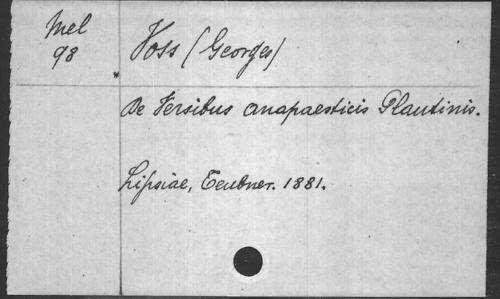 Mel
98
* Voss (Georges)
De Versibus anapaesticis Plautinis.
Lipsiae, Teubner. 1881.